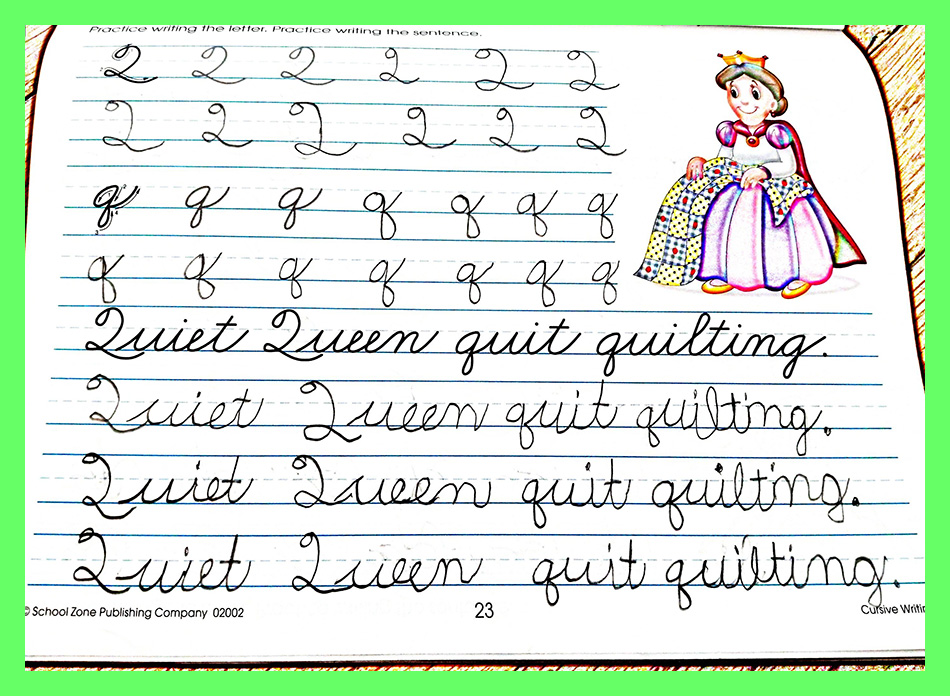 Practice writing the letter. Practice writing the sentence.
Q Q Q Q Q Q
Q Q Q Q Q Q
q q q q q q q
q q q q q q q
Quiet Queen quit quilting.
Quiet Queen quit quilting.
Quiet Queen quit quilting.
Quiet Queen quit quilting.
© School Zone Publishing Company 02002 23 Cursive Writin